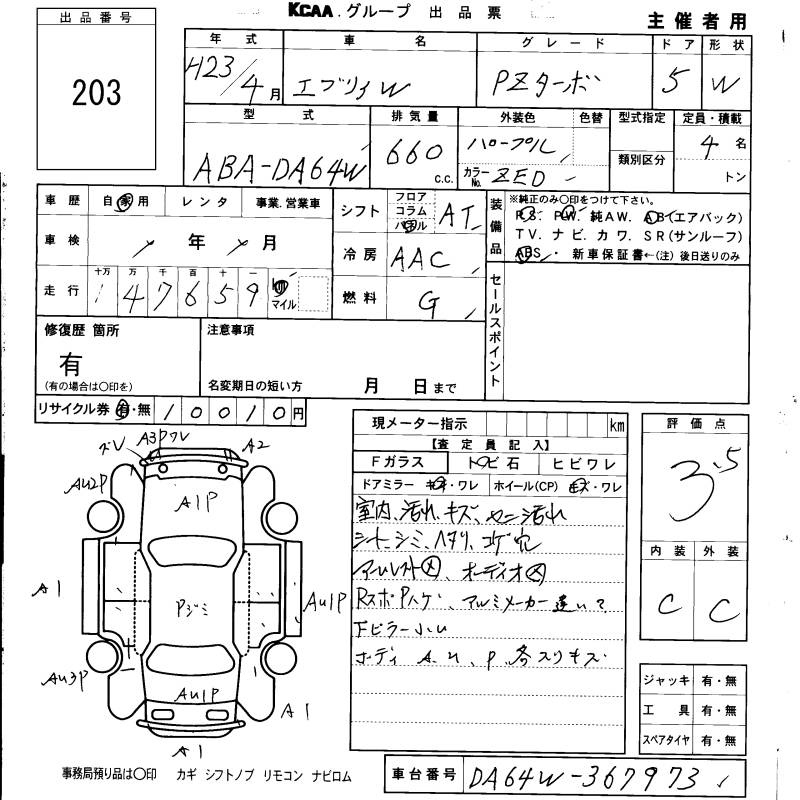 KCAA グループ 出品票
主催者用
出品番号
203
年式 車名 グレード ドア 形状
H23/4月 エブリイW PZターボ 5 W
型式 排気量 外装色 色替 型式指定 定員・積載
ABA-DA64W 660 c.c. パープル 類別区分 4名
カラーNo. ZED トン
車歴 自家用 レンタ 事業.営業車
車検 年 月
走行 十万 万 千 百 十 一
1 4 7 6 5 9 マイル
シフト フロア コラム パネル AT
冷房 AAC
燃料 G
装備品
※純正のみ〇印をつけて下さい。
PS. PW. 純AW. AB(エアバック)
TV. ナビ. カワ. SR(サンルーフ)
ABS. 新車保証書←(注)後日送りのみ
セールスポイント
修復歴 箇所
有
(有の場合は〇印を)
注意事項
名変期日の短い方 月 日まで
リサイクル券 有・無 10010円
現メーター指示 km
【査定員記入】
Fガラス トビ石 ヒビワレ
ドアミラー キズ・ワレ ホイール(CP) キズ・ワレ
室内、汚れ、キズ、
シート シミ、ヘタリ、コゲ穴
オーディオ
アルミメーカー違いで
ボディ A.U.P.各スリキズ
評価点
3.5
内装 外装
C C
ジャッキ 有・無
工具 有・無
スペアタイヤ 有・無
ズレ A3Pワレ A2
AU2P
A1P
A1
Pジミ
AU1P
AU3P
AU1P
A1
A1
事務局預り品は〇印 カギ シフトノブ リモコン ナビロム
車台番号 DA64W-367973